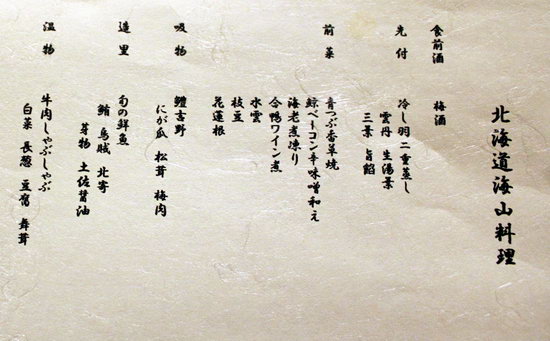 北海道海山料理
食前酒 梅酒
先付 冷し羽二重蒸し
雲丹 生湯葉
三葉 旨餡
前菜 青つぶ香草焼
鯨ベーコン辛味噌和え
海老煮凍り
合鴨ワイン煮
水雲
枝豆
花蓮根
吸物 鱧吉野
にが瓜 松茸 梅肉
造里 旬の鮮魚
鮪 烏賊 北寄
芽物 土佐醤油
温物 牛肉しゃぶしゃぶ
白菜 長葱 豆腐 舞茸